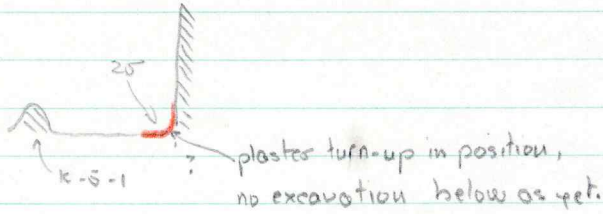 25
?
K-5-1
plaster turn-up in position,
no excavation below as yet.